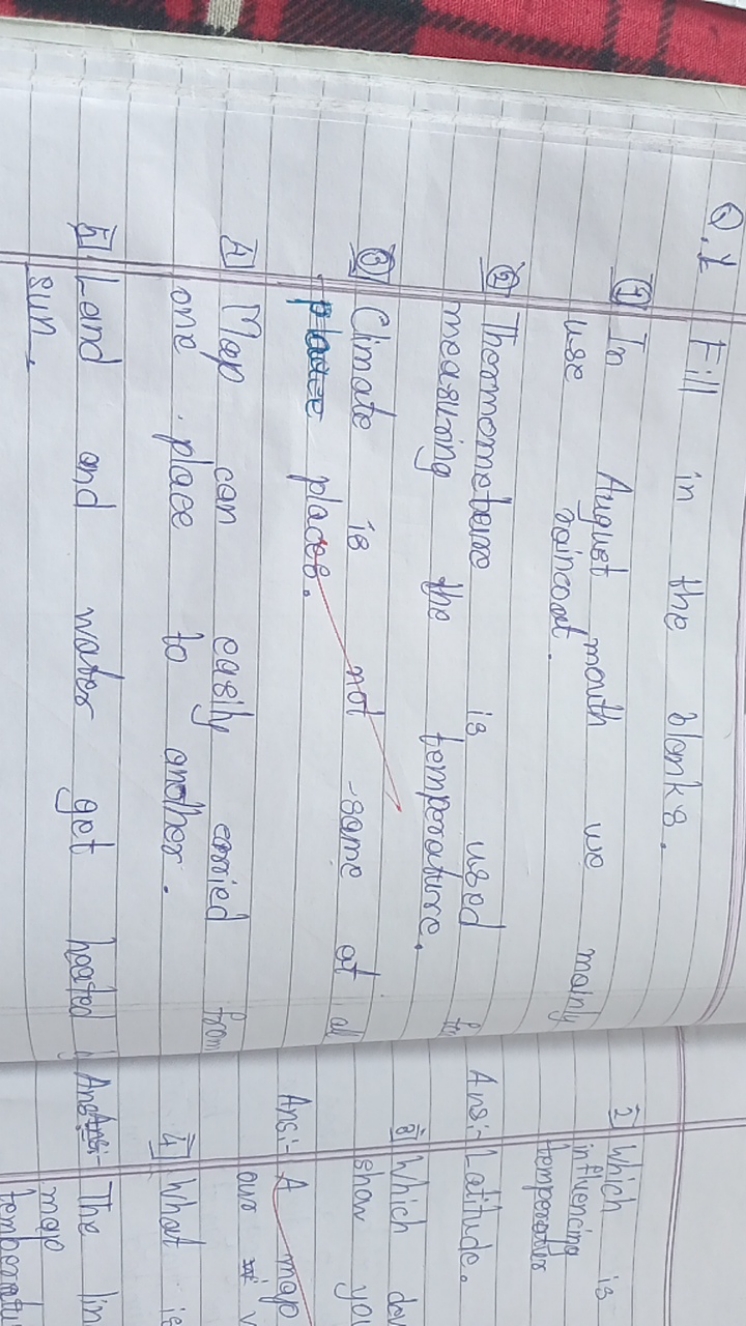 Q.1 Fill in the blanks.
1] In August mouth we mainly
use raincoat.
2] Thermometere is used for
measuring the temperature.
3] Climate is not same at all
places.
4] Map can easily carried from
one place to another.
5] Land and water get heated
sun.
2] Which is
influencing
temperatur
Ans:- Latitude.
3] Which
show you
Ans:- A map
our
4] What is
Ans:- The lin
map
temperatu